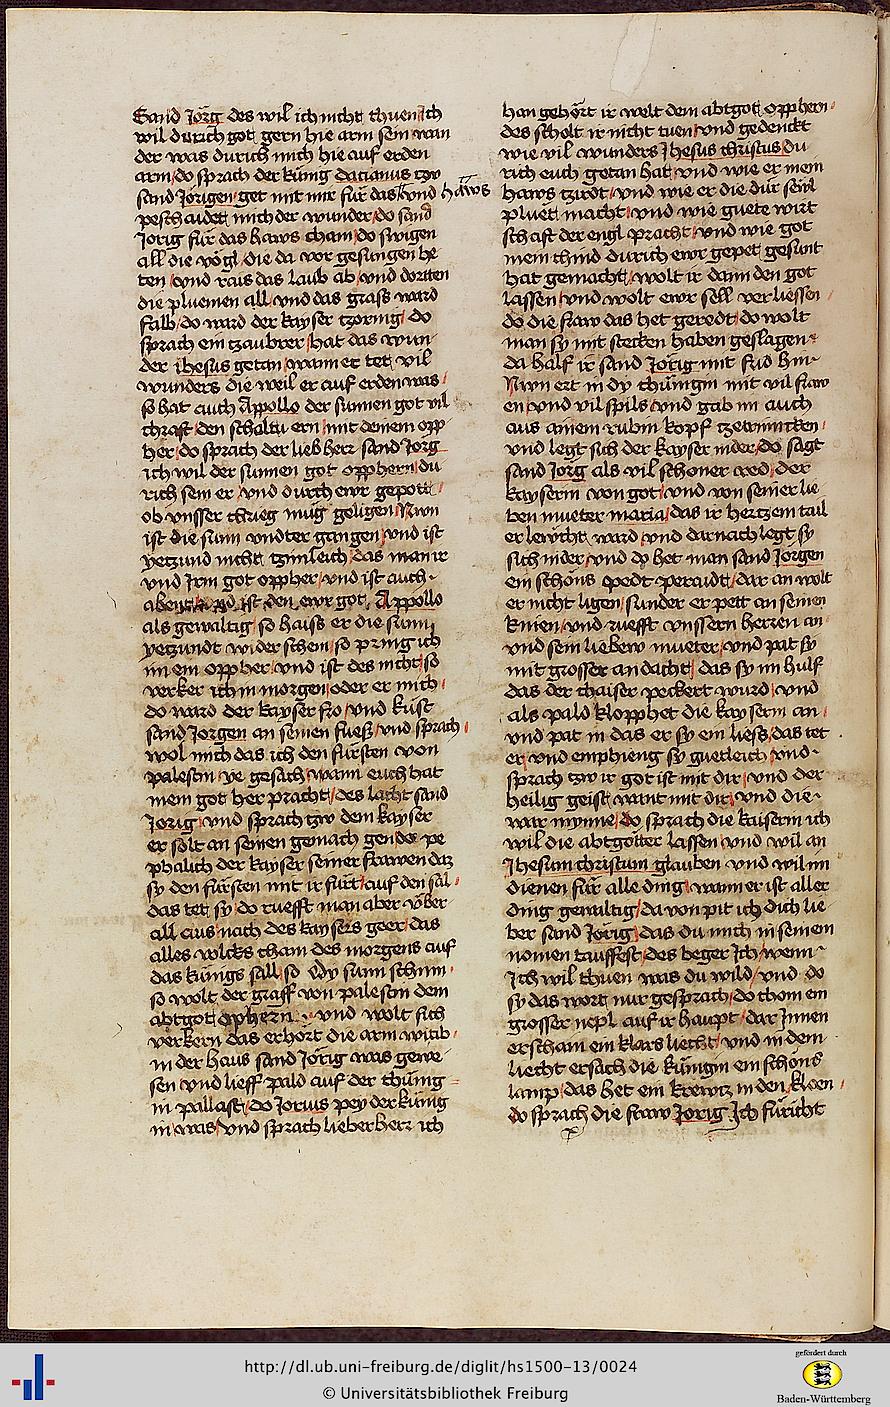 Sand Jörg des wil ich nicht thuen / ich
wil durich got gern hie arm sein wan
der was durich mich hie auf erden
arm / do sprach der künig dacianus tzw
sand Jörigen / get mit mir für das haws vnd
peschaidet mich der wunder / do sand
Jorig für das haws cham / do swigen
all die vögl / die da vor gesungen he
ten / vnd rais das laub ab / vnd dorten
die pluemen all / vnd das grass ward
falb / do ward der kayser tzornig / do
sprach ein tzaubrer / hat das wun
der ihesus getan / wann er tet vil
wunders die weil er auf erden was /
so hat auch Appollo der sunnen got vil
chraft / den scholtu ern / mit deinem opp
her / do sprach der lieb herr sand Jorg
ich wil der sunnen got opphern / du
rich sein er / vnd durch ewr gepott /
ob vnsser chrieg mug geligen / Nwn
ist die sunn vndter gangen / vnd ist
yetzund nicht tzimleich / das man ir
vnd Irm got oppher / vnd ist auch
abent ist den ewr got Appollo
als gewaltig / so haiss er die sunn
yetzundt wider schein / so pring ich
im ein oppher / vnd ist des nicht / so
verker ich in morgen / oder er mich /
do ward der kayser fro / vnd küst
sand Jorgen an seinen fuess / vnd sprach /
wol mich das ich den fürsten von
palestin ye gesach / wann euch hat
mein got her pracht / des lacht sand
Jorig / vnd sprach tzw dem kayser
er solt an seinen gemach gen do pe
phalich der kayser seiner frawen daz
sy den fürsten mit ir fürt / auf den sal /
das tet sy / do ruefft man aber vber
all aus nach des kaysers geer / das
alles volcks cham des morgens auf
das künigs sall / so dy sunn schin
so wolt der graff von palestin dem
abtgot ophern / vnd wolt sich
verkern das erhort die arm witib /
in der haus sand Jörig was gewe
sen vnd lieff pald auf der chünig
in pallast / do Jorius pey der künig
in was / vnd sprach lieber herr ich
haws
han gehört ir welt dem abtgot opphern /
des scholt ir nicht tuen / vnd gedenckt
wie vil wunders Jhesus christus du
rich euch getan hat / vnd wie er mein
haws tzirdt / vnd wie er die dür sewl
pluet macht / vnd wie guete wirt
schaft der engl pracht / vnd wie got
mein chind durich ewr gepet gesunt
hat gemacht / wolt ir dann den got
lassen / vnd wolt ewr sell verliessen /
do die fraw das het geredt / do wolt
man sy mit stecken haben geslagen
da half ir sand Jörig mit frid hin
Nwn ert in dy chünigin mit vil fraw
en / vnd vil spils / vnd gab im auch
aus ainem rubin kopf tzetrincken /
vnd legt sich der kayser nider / do sagt
sand Jorg als vil schoner red / der
kayserin von got / vnd von seiner lie
ben mueter maria / das ir hertzem tail
erlewcht ward / vnd darnach legt sy
sich nider / vnd do het man sand Jorgen
ein schöns pedt peraidt / dar an wolt
er nicht ligen / sunder er pett an seinen
knien / vnd ruefft vnssern herren an
vnd sein liebew mueter / vnd pat sy
mit grosser andacht / das sy im hulf
das der chaiser pechert wurd / vnd
als pald klopphet die kayserin an
vnd pat in das er sy ein liess / das tet
er / vnd emphieng sy guetleich / vnd
sprach tzw ir got ist mit dir / vnd der
heilig geist want mit dir / vnd die
war mynne / do sprach die kaiserin ich
wil die abtgötter lassen / vnd wil an
Jhesum christum glauben vnd wil im
dienen für alle ding / wann er ist aller
ding gewaltig / da von pit ich dich lie
ber sand Jörig / das du mich in seinem
nomen tauffest / des beger Ich / wenn
Ich wil thuen was du wild / vnd do
sy das wort nur gesprach / do chom ein
grosser nepl auf ir haupt / dar Innen
erscham ein klars liecht / vnd in dem
liecht ersach die künigin ein schöns
lamp / das het ein krewtz in den kloen /
do sprach die fraw Jorig Ich füricht
http://dl.ub.uni-freiburg.de/diglit/hs1500-13/0024
© Universitätsbibliothek Freiburg
gefördert durch
Baden-Württemberg